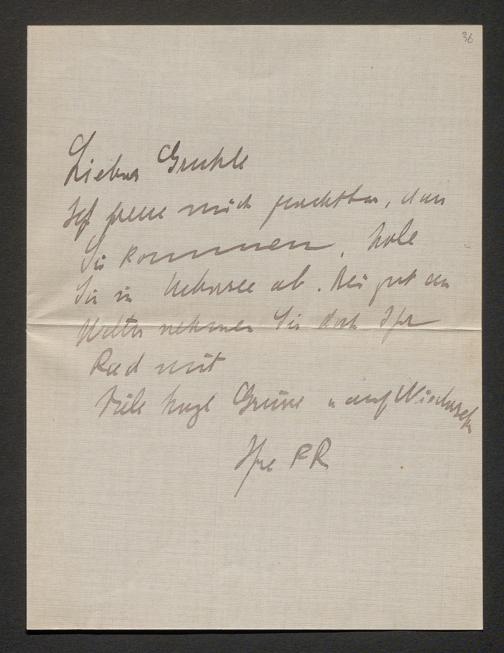 36
Lieber Gruhle
Ich freue mich furchtbar, dass
Sie kommen, hole
Sie in Uebersee ab. Bei gutem
Wetter nehmen Sie doch Ihr
Rad mit
Viele herzl Grüsse u auf Wiedersehn
Ihre FR